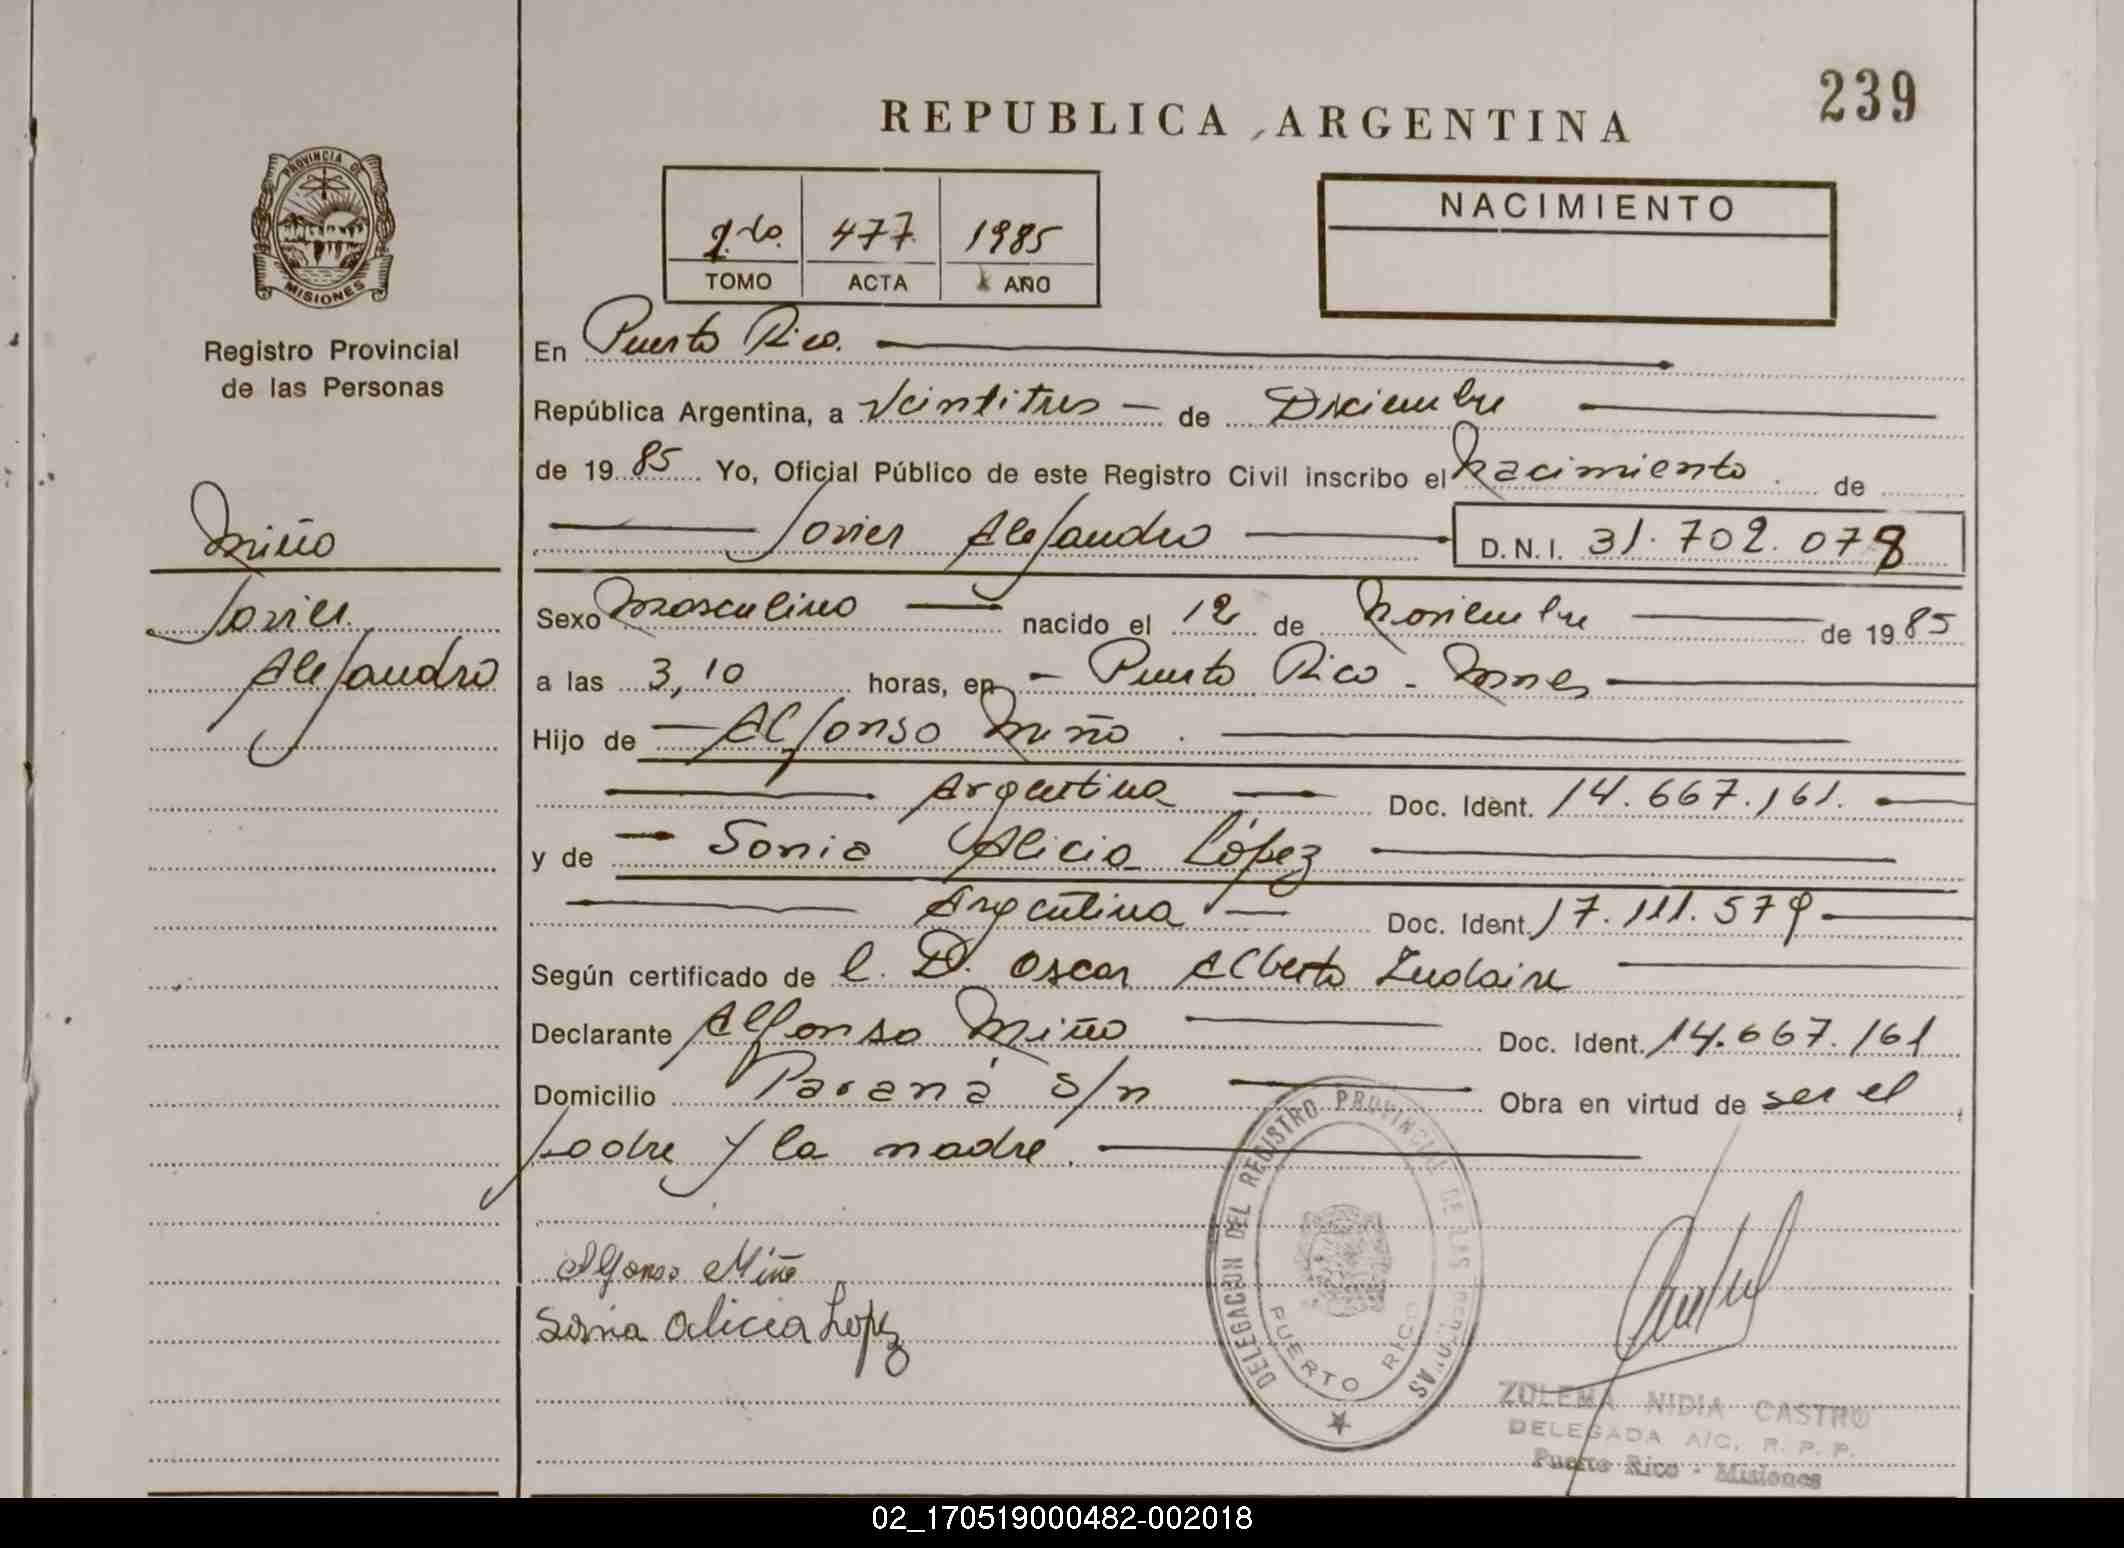 239
REPUBLICA ARGENTINA
PROVINCIA DE
MISIONES
Registro Provincial
de las Personas
2do. 477 1985
TOMO ACTA AÑO
NACIMIENTO
En Puerto Rico.
República Argentina, a Veintitres de Diciembre
de 1985 Yo, Oficial Público de este Registro Civil inscribo el Nacimiento de
Miño
Javier Alejandro D.N.I. 31.702.078
Javier
Sexo Masculino nacido el 12 de Noviembre de 1985
Alejandro
a las 3,10 horas, en Puerto Rico - Mnes
Hijo de Alfonso Miño.
Argentina Doc. Ident. 14.667.161.
y de Sonia Alicia López
Argentina Doc. Ident. 17.111.579
Según certificado de l. D. Oscar Alberto
Declarante Alfonso Miño Doc. Ident. 14.667.161
Domicilio Paraná s/n Obra en virtud de ser el
padre y la madre.
Alfonso Miño
Sonia Alicia Lopez
DELEGACION DEL REGISTRO PROVINCIAL DE LAS PERSONAS
PUERTO RICO
ZULEMA NIDIA CASTRO
DELEGADA A/C. R. P. P.
Puerto Rico - Misiones
02_170519000482-002018